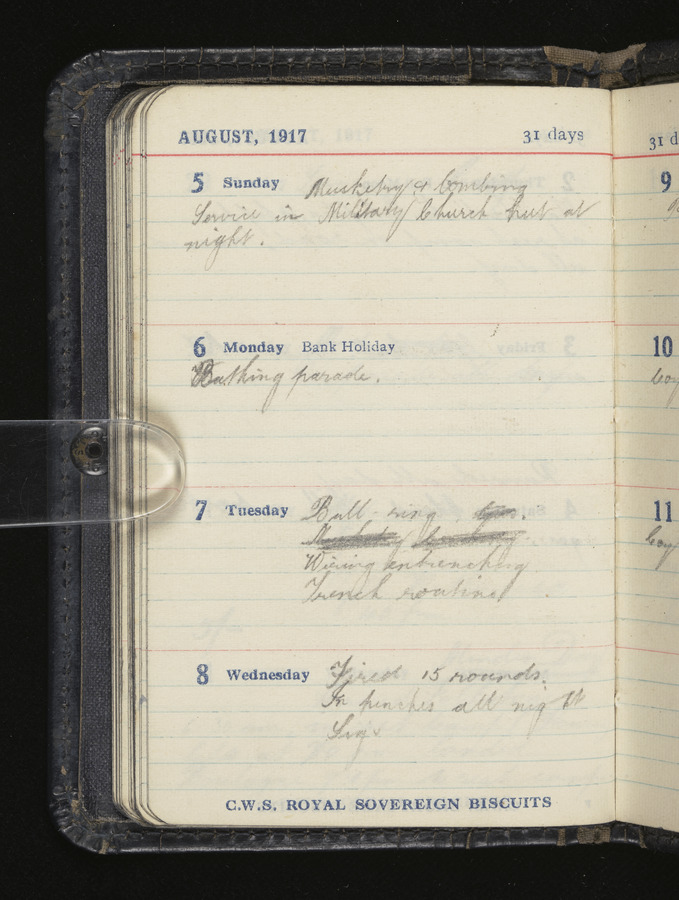 AUGUST, 1917 31 days
5 Sunday Musketry & bombing
Service in Military Church hut at
night.
6 Monday Bank Holiday
Bathing parade.
7 Tuesday Bull-ring
Musketry bombing
Wiring entrenching
Trench routine
8 Wednesday Fired 15 rounds.
In trenches all night
C.W.S. ROYAL SOVEREIGN BISCUITS
31 d
9
10
11